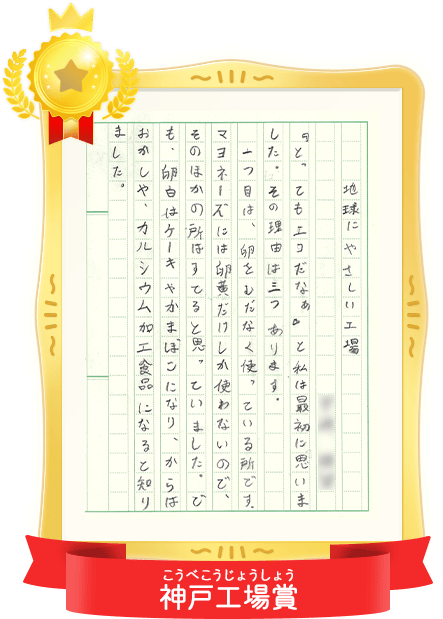 地球にやさしい工場
『とってもエコだなぁ』と私は最初に思いま
した。その理由は三つあります。
一つ目は、卵をむだなく使っている所です。
マヨネーズには卵黄だけしか使わないので、
そのほかの所はすてると思っていました。で
も、卵白はケーキやかまぼこになり、からは
おかしや、カルシウム加工食品になると知り
ました。
こうべこうじょうしょう
神戸工場賞